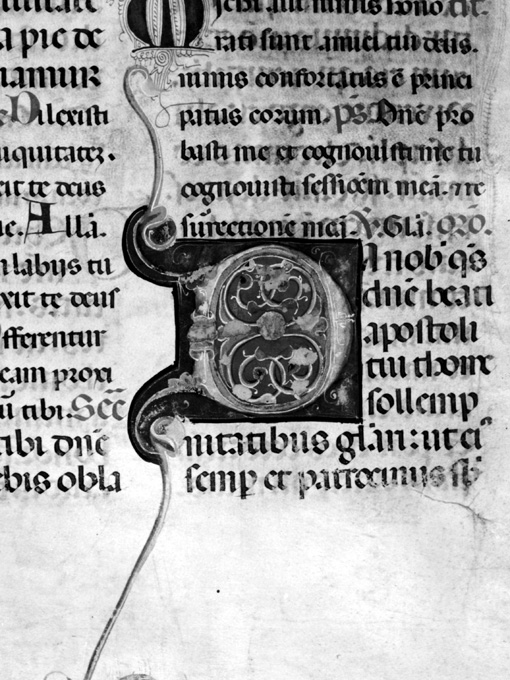 a pie de
namur
Dilexisti
iquitatez.
xit te deus
Allã.
labijs tu
xit te deus
fferentur
eam proxi
tibi. Scc̃
tibi dñe
ebis obla
michi aũt nimis hono
rati sunt amici tui deus.
nimis confortatus ẽ princi
patus eorum. p̃s. Dñe pro
basti me et cognouisti me tu
cognouisti sessiõem meã. et re
surrectionẽ meã. V. Glã. oro.
Da nob̃ q̃s
dñe beati
apostoli
tui thome
sollemp
nitatibus glãri: ut ei⁹
semp et patrocinijs sb̃